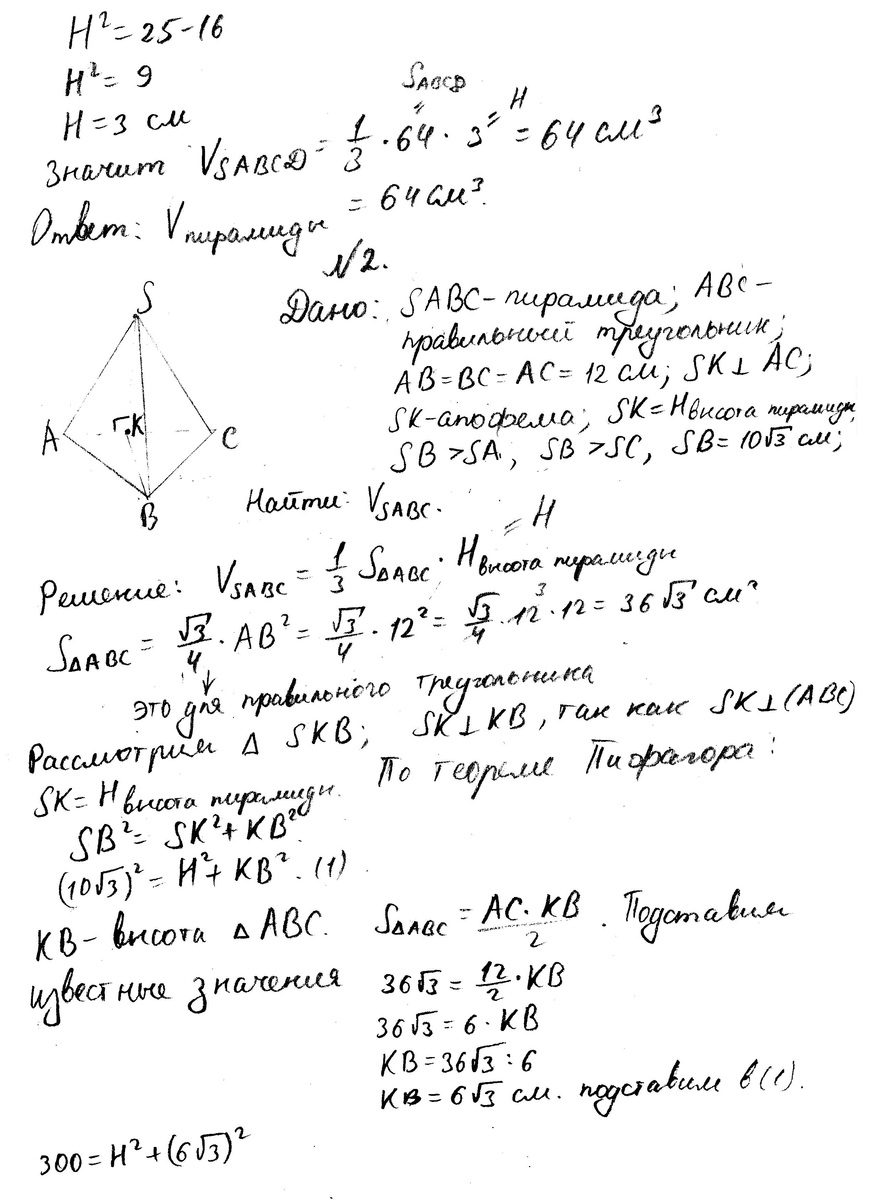 H² = 25 - 16
H² = 9
H = 3 см
S_ABCD = H
Значит V_SABCD = 1/3 · 64 · 3 = 64 см³
Ответ: V пирамиды = 64 см³.
№2.
S
A
Г.К
C
B
Дано: SABC - пирамида; ABC -
правильный треугольник;
AB = BC = AC = 12 см; SK ⊥ AC;
SK - апофема; SK = H высота пирамиды
SB > SA, SB > SC, SB = 10√3 см;
Найти: V_SABC.
= H
Решение: V_SABC = 1/3 S_ΔABC · H высота пирамиды
S_ΔABC = √3/4 · AB² = √3/4 · 12² = √3/4 · 12 · 12 = 36√3 см²
3
это для правильного треугольника
Рассмотрим Δ SKB; SK ⊥ KB, так как SK ⊥ (ABC)
SK = H высота пирамиды. По теореме Пифагора:
SB² = SK² + KB²
(10√3)² = H² + KB². (1)
KB - высота Δ ABC. S_ΔABC = AC · KB / 2. Подставим
известные значения 36√3 = 12/2 · KB
36√3 = 6 · KB
KB = 36√3 : 6
KB = 6√3 см. подставим в (1).
300 = H² + (6√3)²